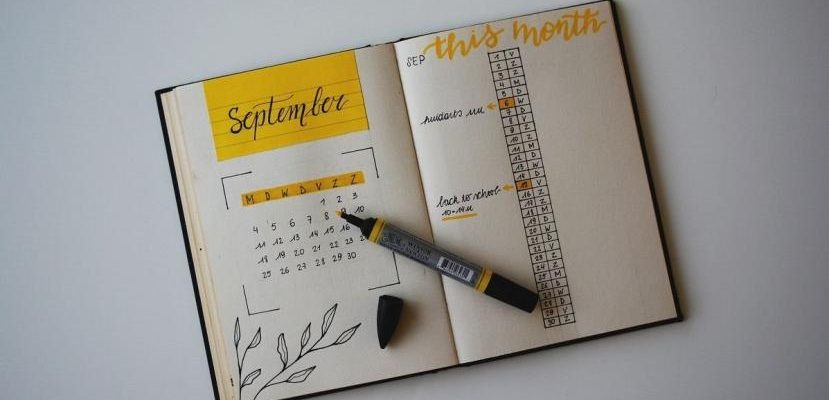 September
M D W D V Z Z
1 2 3
4 5 6 7 8 9 10
11 12 13 14 15 16
18 19 20 21 22 23
25 26 27 28 29 30
SEP this month
1 V
2 Z
3 Z
4 M
5 D
huidarts
6 W
7 D
8 V
9 Z
10 Z
11 M
12 D
13 W
14 D
back to school
10-14u
15 V
16 Z
17 Z
18 M
19 D
20 W
21 D
22 V
23 Z
24 Z
25 M
26 D
27 W
28 D
29 V
30 Z